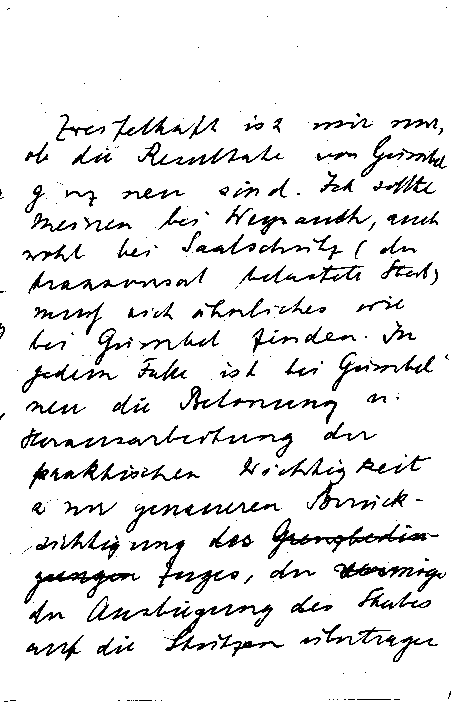 Zweifelhaft ist mir nur,
ob die Resultate von Gümbel
ganz neu sind. Ich sollte
meinen bei Weyrauch, auch
wohl bei Saalschütz (der
transversal belastete Stab)
muß sich ähnliches wie
bei Gümbel finden. In
jedem Falle ist bei Gümbel
neu die Betonung u.
Herausarbeitung der
praktischen Wichtigkeit
einer genaueren Berück-
sichtigung des Grenzbedin-
gungen Zuges, der vermöge
der Ausbiegung des Stabes
auf die Stützen übertragen